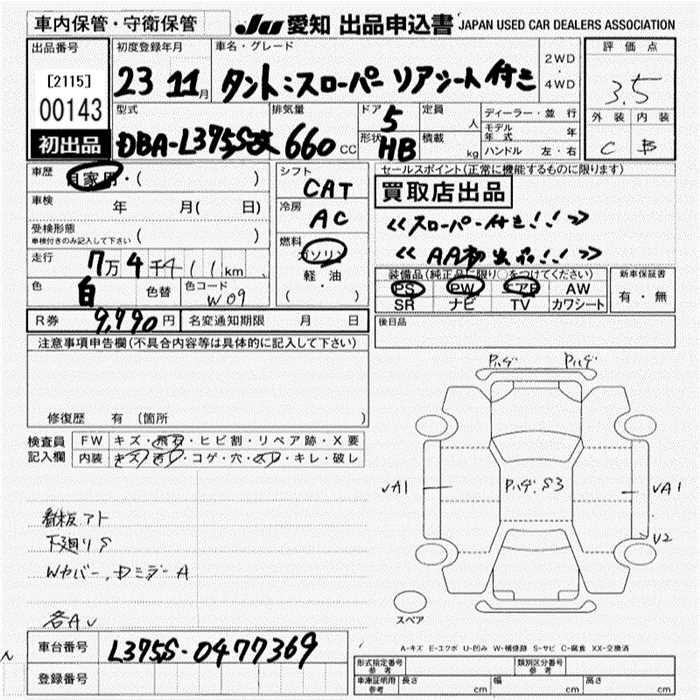 車内保管・守衛保管 JU 愛知 出品申込書 JAPAN USED CAR DEALERS ASSOCIATION
出品番号 初度登録年月 車名・グレード 評価点
[2115] 23 11月 タント:スローパー リアシート付き 2WD・4WD 3.5
00143
初出品
型式 排気量 ドア 定員 ディーラー・並行 外装 内装
DBA-L375S改 660cc 5 人 モデル年式 年 C B
形状 HB 積載 kg ハンドル 左・右
車歴 自家用・( ) シフト CAT セールスポイント(正常に機能するものに限ります)
車検 年 月( 日) 冷房 AC 買取店出品
受検形態 車検付きのみ記入して下さい ( ) 《スローパー付き!!》
走行 7万4千11km 燃料 ガソリン 《AA初出品!!》
色 白 色替 色コード W09 軽油・( )
装備品(純正品に限り○をつけてください) 新車保証書
PS PW エアB AW 有・無
SR ナビ TV カワシート
R券 9,990円 名変通知期限 月 日 後日品
注意事項申告欄(不具合内容等は具体的に記入して下さい)
修復歴 有 (箇所 )
検査員記入欄 FW キズ・飛石・ヒビ割・リペア跡・X要
内装 キズ・汚レ・コゲ・穴・スレ・キレ・破レ
Pハゲ Pハゲ
VA1 Pハゲ.S3 VA1
V2
看板アト
下廻りS
Wカバー、
各AV
スペア
A-キズ E-エクボ U-凹み W-補修跡 S-サビ C-腐食 XX-交換済
車台番号 L375S-0477369
登録番号
形式指定番号 参考 類別区分番号 参考
車庫証明用 参考 長さ cm 幅 cm 高さ cm